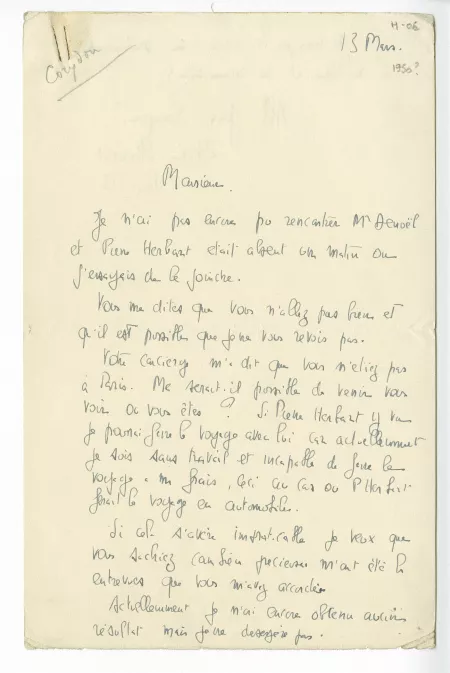 H-06
13 Mars.
1930?
Corydon
Monsieur.
Je n'ai pas encore pu rencontrer Mr Denoël
et Pierre Herbart était absent un matin ou
j'essayais de le joindre.
Vous me dites que vous n'allez pas bien et
qu'il est possible que je ne vous revois pas.
Votre concierge m'a dit que vous n'etiez pas
à Paris. Me serait-il possible de venir vous
voir ou vous êtes ? Si Pierre Herbart y va
je pourrai faire le voyage avec lui car actuellement
je suis sans travail et incapable de faire le
voyage a mes frais, ceci au cas ou P Herbart
ferait le voyage en automobile.
Si cela s'avère impraticable je veux que
vous sachiez combien precieuses m'ont été les
entrevues que vous m'avez accordées
Actuellement je n'ai encore obtenu aucun
résultat mais je ne desespère pas.